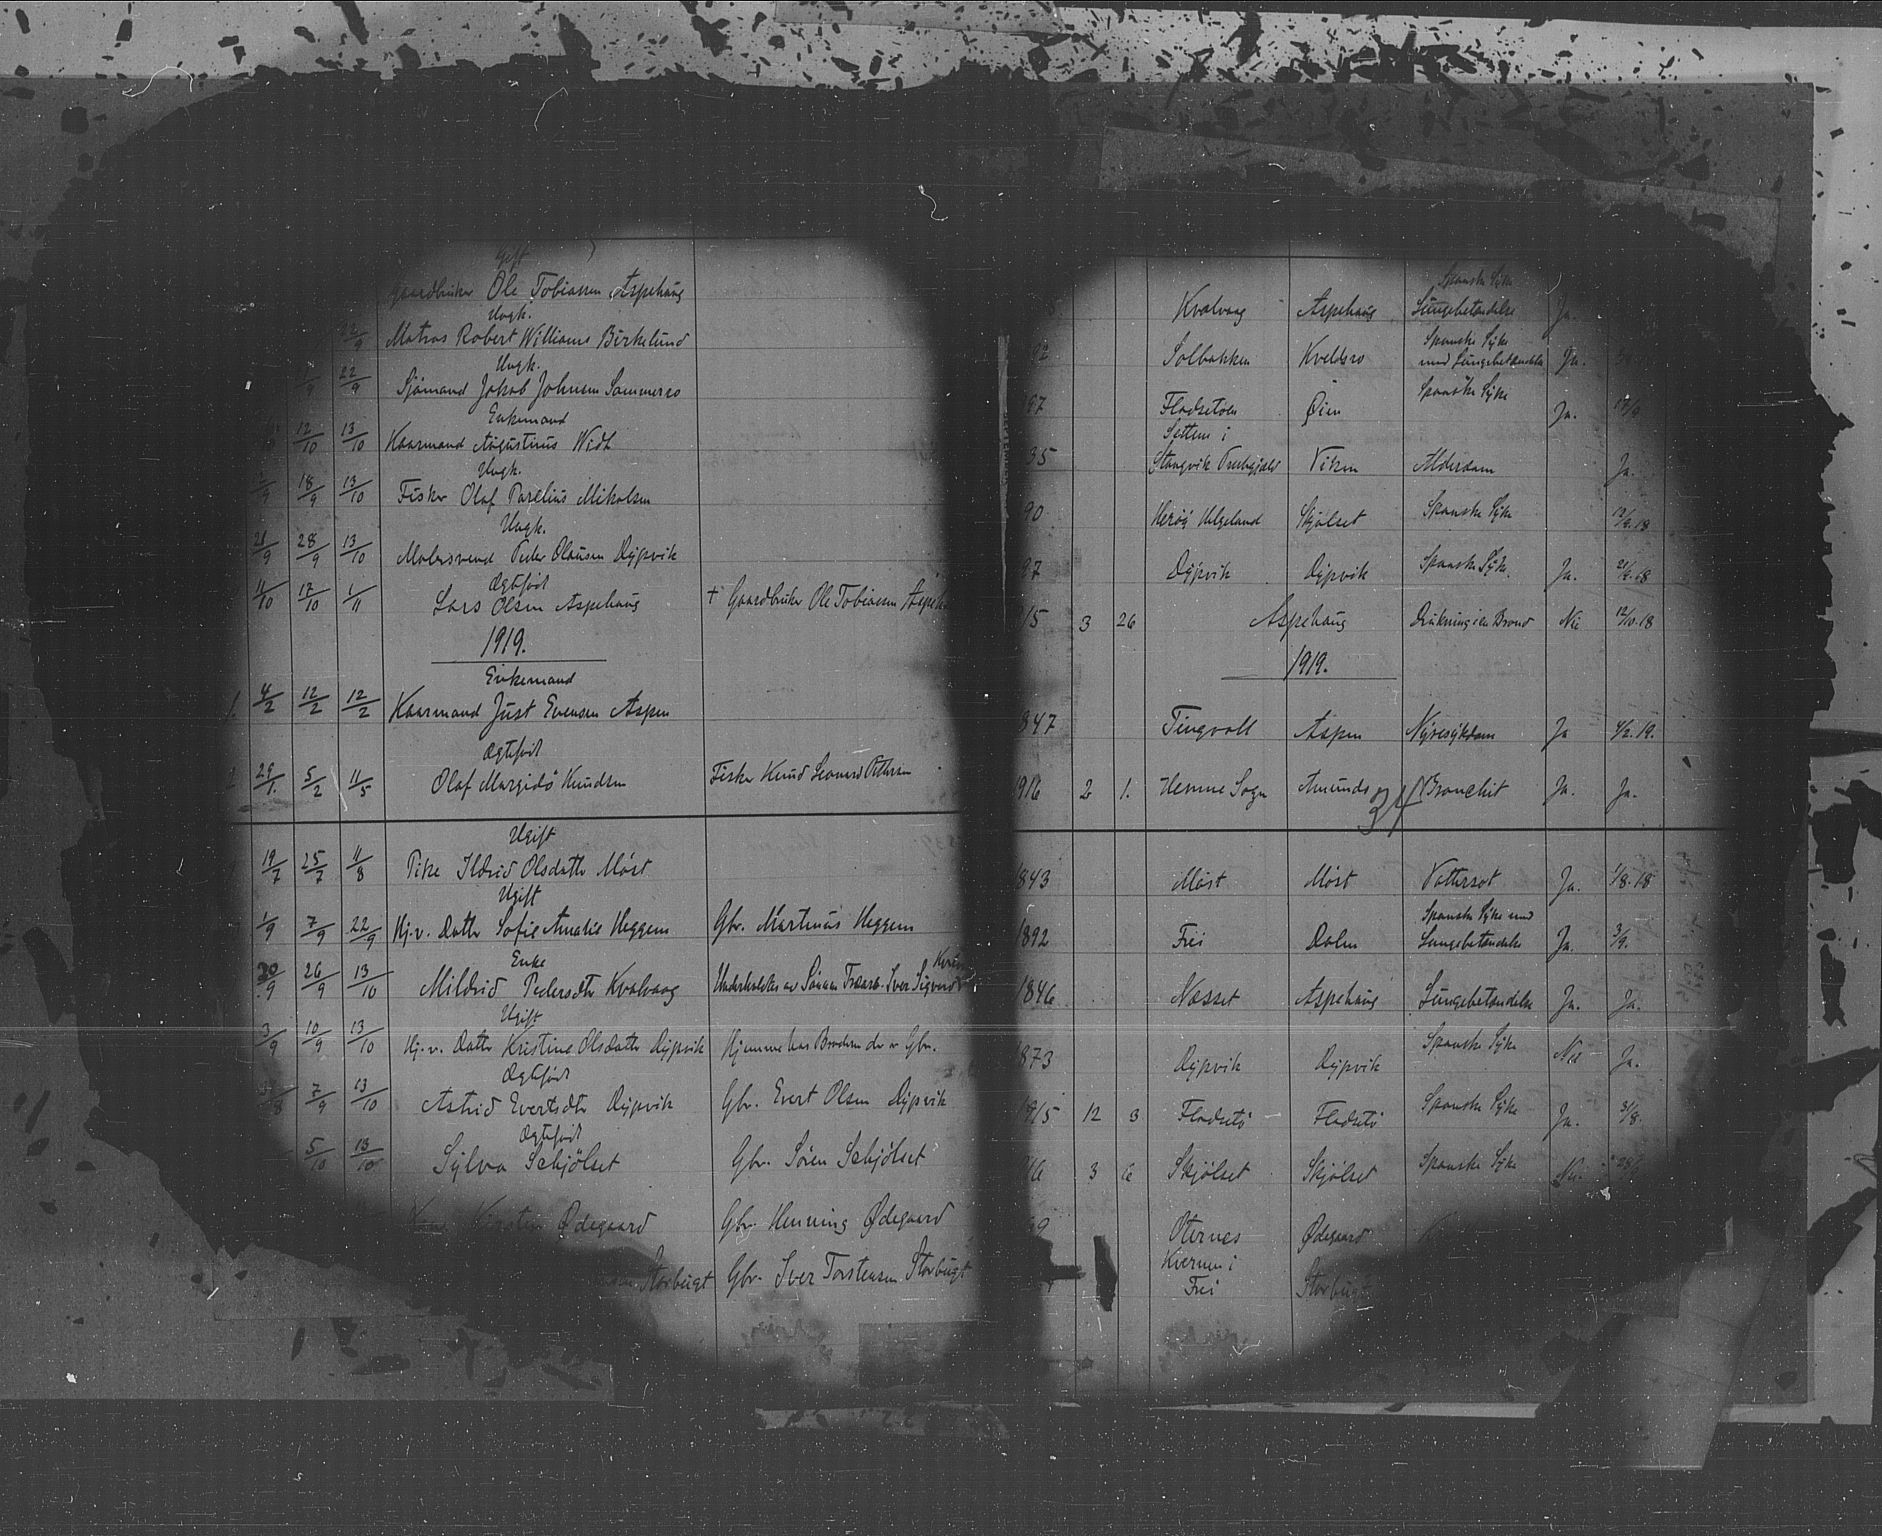 Gift
Gaardbruker Ole Tobiassen Aspehaug
Ungk.
22/9 Matros Robert Williams Birkelund
Ungk.
22/9 Sjømand Jakob Johnsen Sommerro
Enkemand
12/10 13/10 Kaarmand Augustinus Widt
Ungk.
18/9 13/10 Fisker Olaf Parelius Mikalsen
Ungk.
21/9 28/9 13/10 Malersvend Peder Olausen Dypvik
Ægtefød
11/10 17/10 1/11 Lars Olsen Aspehaug + Gaardbruker Ole Tobiassen
1919.
Enkemand
1. 4/2 12/2 12/2 Kaarmand Just Evensen Aspen
Ægtefød
29/1 5/2 11/5 Olaf Margido Knudsen Fisker Knud Leonard Pettersen
Ugift
19/7 25/7 11/8 Pike Ildrid Olsdatter Møst
Ugift
1/9 7/9 22/9 Hj.v. Datter Sofie Amalie Heggem Gbr. Martinus Heggem
Enke
20/9 26/9 13/10 Mildrid Pedersdtr Kvalvaag Underholdtes av Sønnen Iver
Ugift
3/9 10/9 13/10 Hj.v. Datter Kristine Olsdatter Dypvik Hjemme hos Broderen der er Gbr.
Ægtefød
7/9 13/10 Astrid Evertsdtr Dypvik Gbr. Evert Olsen Dypvik
Ægtefød
5/10 13/10 Sylva Schjølset Gbr. Søren Schjølset
Ødegaard Gbr. Henning Ødegaard
Storbugt Gbr. Iver Torstensen Storbugt
Spanske Syke
Kvalvaag Aspehaug Lungebetændelse Ja
Spanske Syke
92 Solbakken Kveldsro med Lungebetændelse Ja.
97 Fladsetøen Øien Spanske Syke Ja.
Settem i
35 Stangvik Prestgjæld Viken Alderdom Ja.
90 Herøy Helgeland Skjølset Spanske Syke 12/9.18
97 Dypvik Dypvik Spanske Syke. Ja. 21/9.18
15 3 26 Aspehaug Drukning i en Brønd Nei 12/10.18
1919.
847 Tingvoll Aspen Nyresykdom Ja 4/2.19.
1916 2 1. Hemne Sogn Amunds Bronchit Ja. Ja.
843 Møst Møst Vattersot Ja. 1/8.18
Spanske Syke med
1892 Frei Dalen Lungebetændelse Ja. 3/9.
1846 Nesset Aspehaug Lungebetændelse Ja. Ja.
873 Dypvik Dypvik Spanske Syke Nei Ja.
1915 12 3 Fladsetø Fladsetø Spanske Syke Ja. 31/8.
16 3 6 Skjølset Skjølset Spanske Syke Nei.
Oternes Ødegaard
Kvernen i
Frei Storbugt